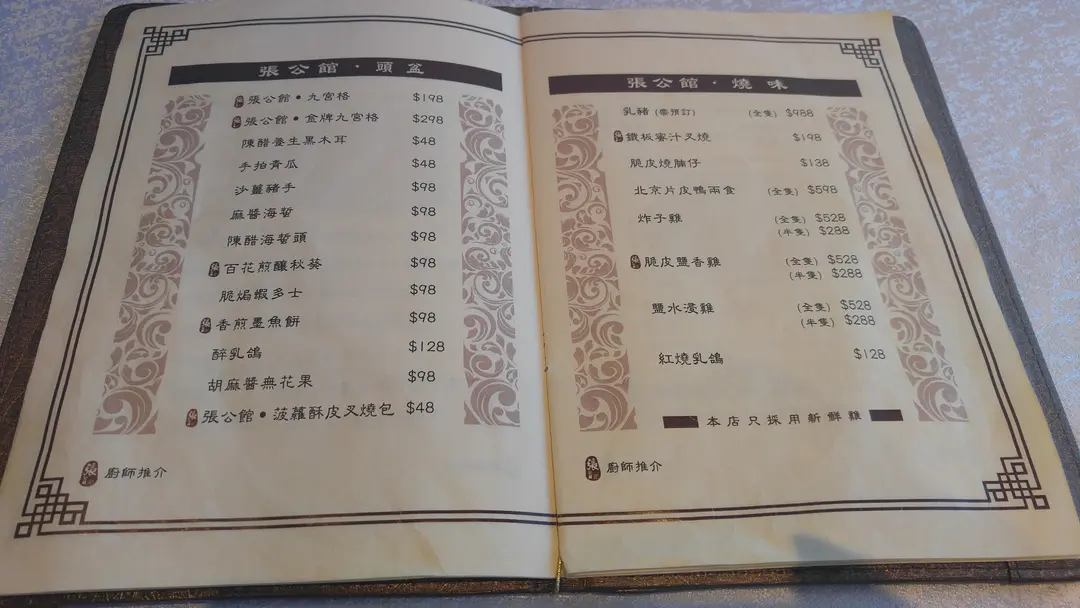 張公館·頭盆
張公館•九宮格 $198
張公館•金牌九宮格 $298
陳醋養生黑木耳 $48
手拍青瓜 $48
沙薑豬手 $98
麻醬海蜇 $98
陳醋海蜇頭 $98
百花煎釀秋葵 $98
脆焗蝦多士 $98
香煎墨魚餅 $98
醉乳鴿 $128
胡麻醬無花果 $98
張公館•菠蘿酥皮叉燒包 $48
張 廚師推介
張公館·燒味
乳豬 (需預訂) (全隻) $988
鐵板蜜汁叉燒 $198
脆皮燒腩仔 $138
北京片皮鴨兩食 (全隻) $598
炸子雞 (全隻) $528
(半隻) $288
脆皮鹽香雞 (全隻) $528
(半隻) $288
鹽水浸雞 (全隻) $528
(半隻) $288
紅燒乳鴿 $128
本店只採用新鮮雞
張 廚師推介